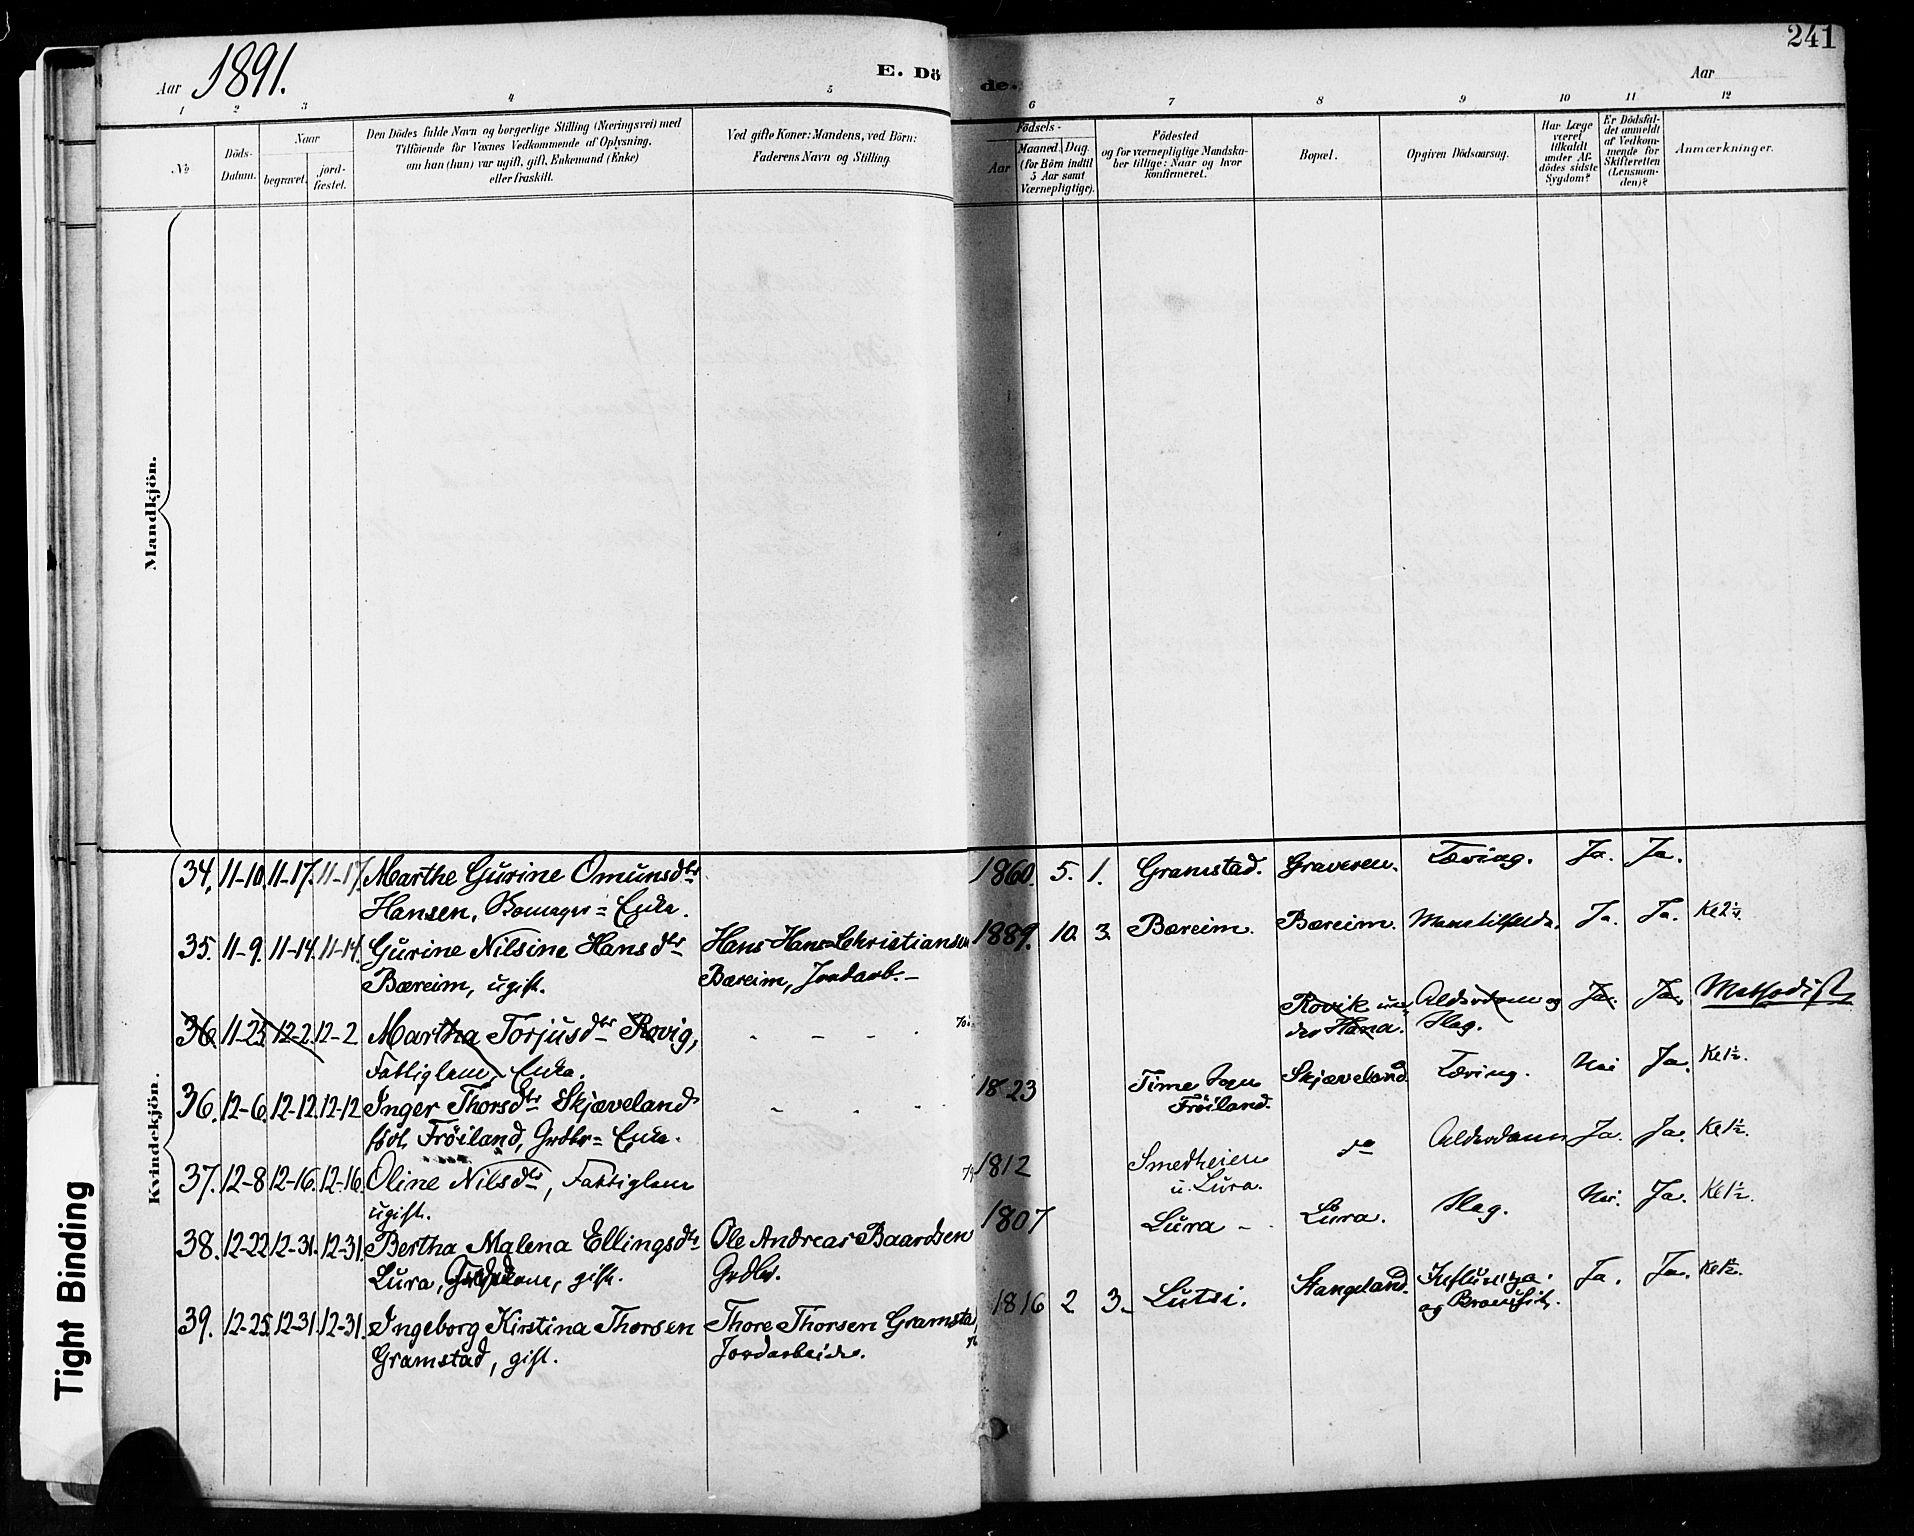 241
Aar 1891.
E. Dö
de.
Aar
1 2 3 4 5 6 7 8 9 10 11 12
No
Döds-
Datum.
Naar
begravet.
jord-
fæstet.
Den Dödes fulde Navn og borgerlige Stilling (Næringsvei) med
Tilföiende for Voxnes Vedkommende af Oplysning,
om han (hun) var ugift, gift, Enkemand (Enke)
eller fraskilt.
Ved gifte Koner: Mandens, ved Börn:
Faderens Navn og Stilling.
Födsels-
Aar
Maaned. Dag.
(for Börn indtil
5 Aar samt
Værnepligtige).
Födested
og for værnepligtige Mandska-
ber tillige: Naar og hvor
konfirmeret.
Bopæl.
Opgiven Dödsaarsag.
Har Læge
været
tilkaldt
under Af-
dödes sidste
Sygdom?
Er Dödsfal-
det anmeldt
af Vedkom-
mende for
Skifteretten
(Lensman-
den)?
Anmærkninger.
Mandkjön.
Kvindekjön.
34. 11-10. 11-17. 11-17. Marthe Gurine Omunsdtr 1860. 5. 1. Gramstad. Graveren. Tæring. Ja. Ja.
Hansen, Enke.
35. 11-9. 11-14. 11-14. Gurine Nilsine Hansdtr Hans Hans Christiansen 1889. 10. 3. Bæreim. Bæreim. Ja. Ja.
Bæreim, ugift. Bæreim, Jordarb. -
36 11-25 12-2 12-2 Martha Torjusdtr Rovig, - - - Rovik un- Alderdom og Ja. Ja. Methodist
der Hana. Slag.
Fattiglem, Enke.
36. 12-6. 12-12. 12-12 Inger Thorsdtr Skjæveland - - - 1823 Time Sogn Skjæveland Tæring. Nei Ja.
Fröiland.
föd. Fröiland, Grdbr = Enke.
37. 12-8 12-16. 12-16. Oline Nilsdtr, Fattiglem 1812 Smedheien do Alderdom Ja. Ja.
u. Lura.
ugift.
38. 12-22 12-31. 12-31. Bertha Malena Ellingsdtr Ole Andreas Baardsen 1807 Lura - Lura. Slag. Nei. Ja.
Lura, gift. Grdbr.
39. 12-25. 12-31. 12-31. Ingeborg Kirstina Thorsen Thore Thorsen Gramstad, 1816 2 3. Lutsi. Stangeland. Influenza. Ja. Ja.
og Bronchit.
Gramstad, gift. Jordarbeider.
Tight Binding